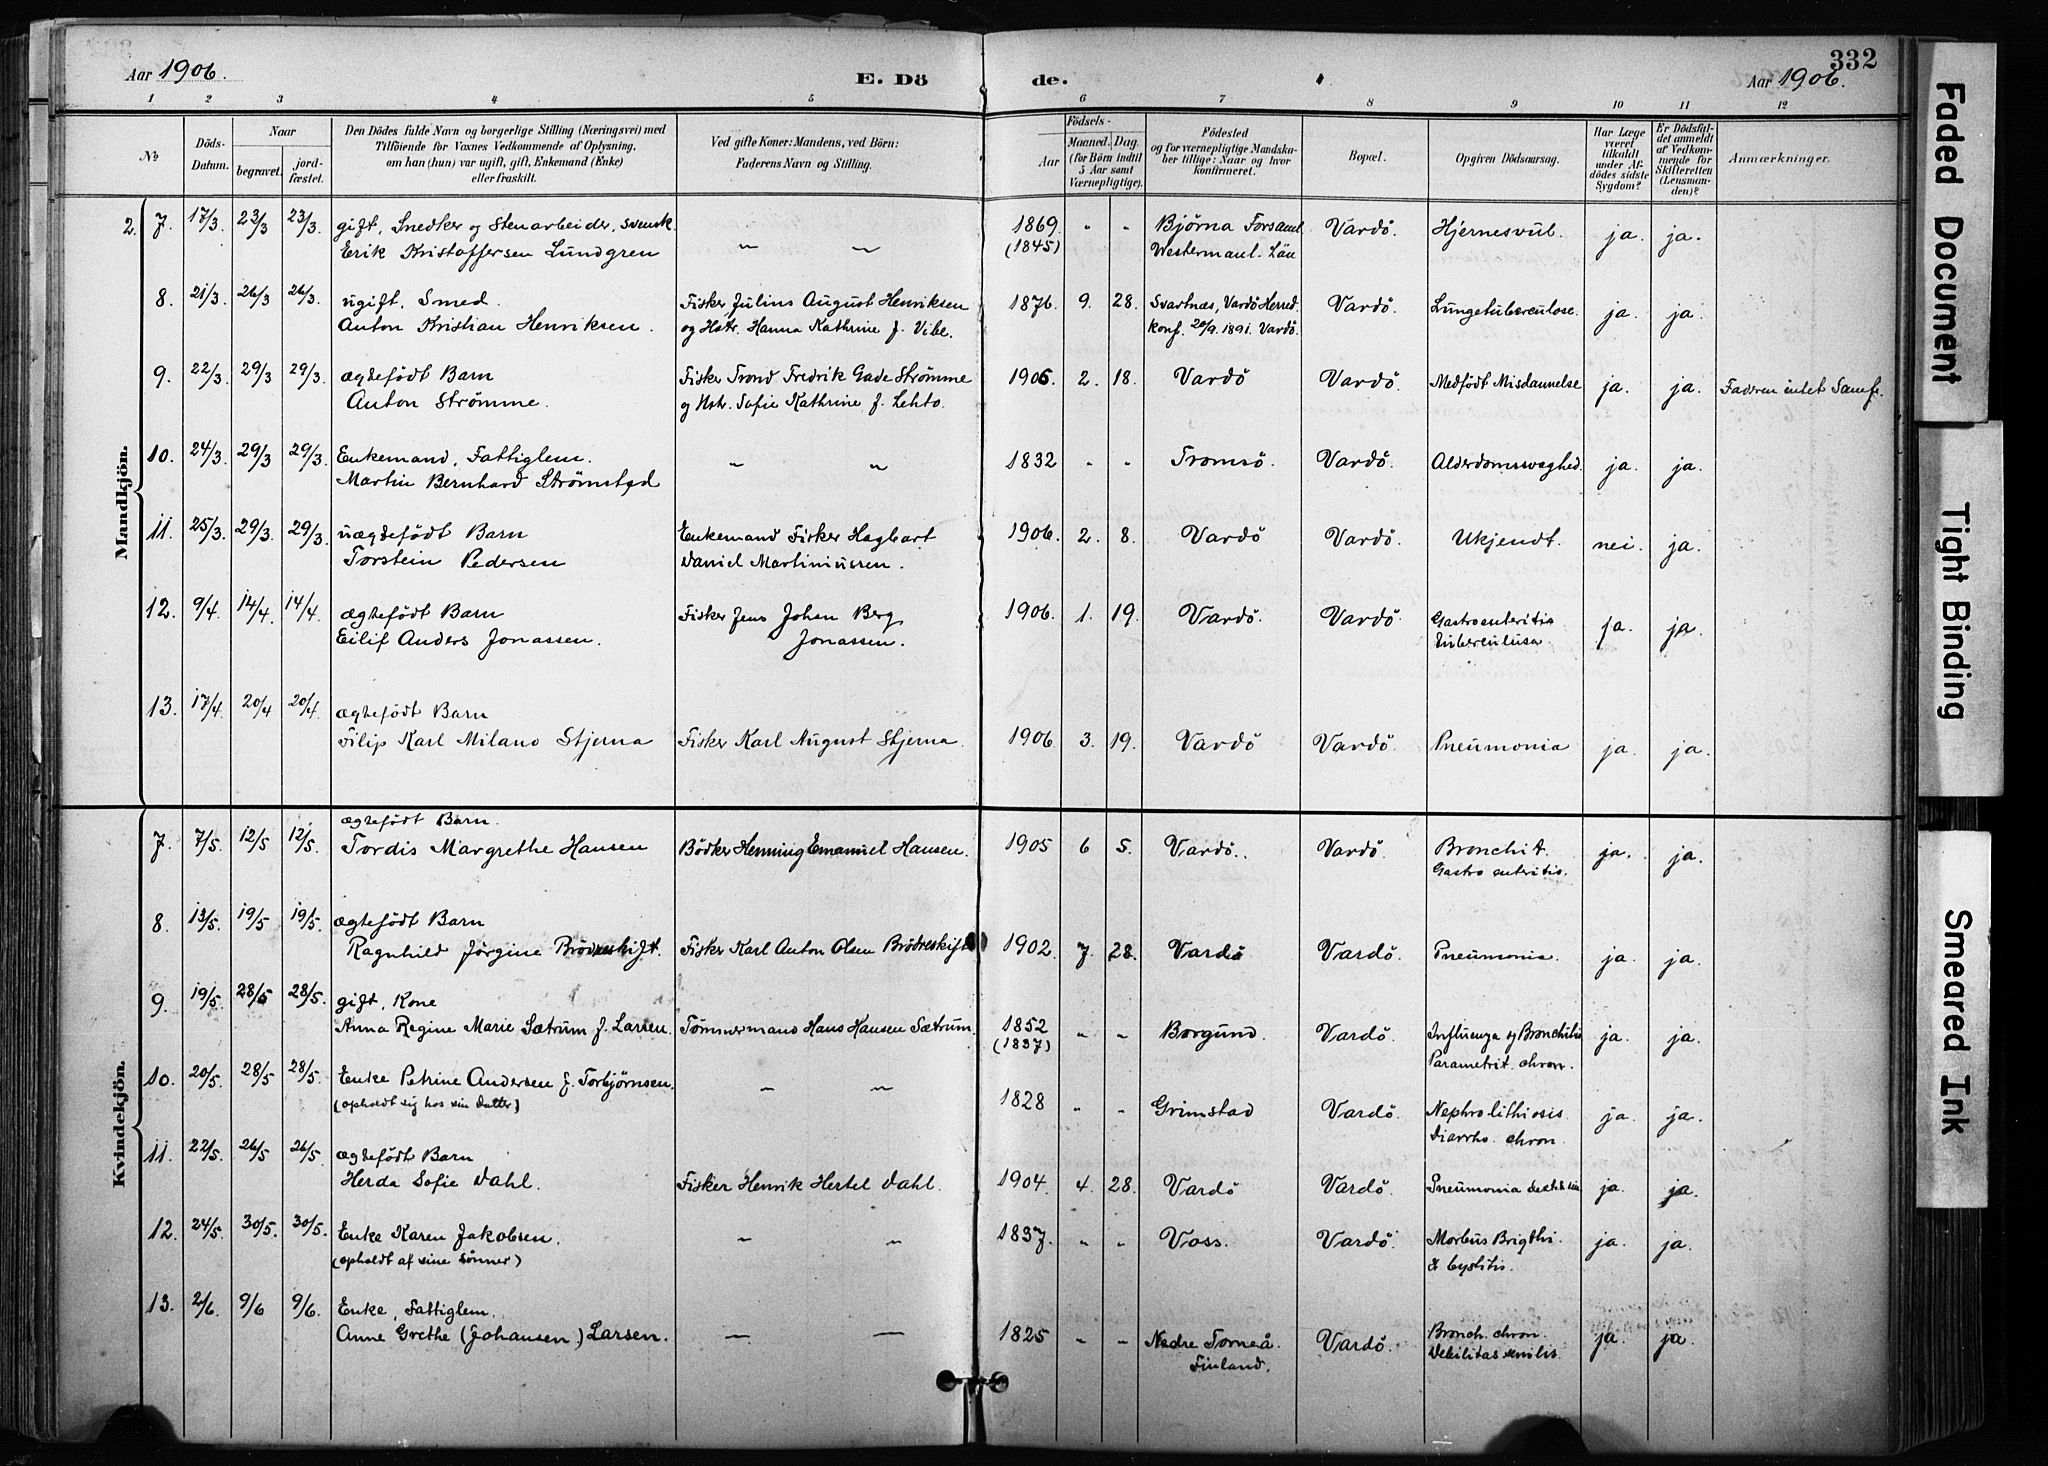 332
Aar 1906.
E. Dö de.
Aar 1906.
1 2 3 4 5 6 7 8 9 10 11 12
№
Döds-Datum.
Naar
begravet.
jord-fæstet.
Den Dödes fulde Navn og borgerlige Stilling (Næringsvei) med
Tilföiende for Voxnes Vedkommende af Oplysning,
om han (hun) var ugift, gift, Enkemand (Enke)
eller fraskilt.
Ved gifte Koner: Mandens, ved Börn:
Faderens Navn og Stilling.
Födsels-
Aar
Maaned. Dag
(for Börn indtil
5 Aar samt
Værnepligtige).
Födested
og for værnepligtige Mandska-
ber tillige: Naar og hvor
konfirmeret.
Bopæl.
Opgiven Dödsaarsag.
Har Læge
været
tilkaldt
under Af-
dödes sidste
Sygdom?
Er Dödsfal-
det anmeldt
af Vedkom-
mende for
Skifteretten
(Lensman-
den)?
Anmærkninger.
Mandkjön.
2. 7. 17/3 23/3 23/3. gift, Snedker og Stenarbeider, svensk. 1869 " " Björna Forsaml. Vardö. Hjernesvul. ja. ja.
Erik Kristoffersen Lundgren " " (1845) Westermanl. Län
8. 21/3. 26/3 26/3. ugift, Smed. Fisker Julius August Henriksen 1876 9. 28. Svartnæs, Vardö Herred. Vardö. Lungetuberculose. ja. ja.
Anton Kristian Henriksen. og Hstr. Hanna Kathrine f. Vibe. konf. 20/9. 1891. Vardö.
9. 22/3. 29/3 29/3. ægtefödt Barn Fisker Trond Fredrik Gade Strömme 1906 2. 18. Vardö Vardö. Medfödt Misdannelse ja. ja. Faderen intet Samf.
Anton Strömme. og Hstr. Sofie Kathrine f. Lehto.
10. 24/3. 29/3 29/3. Enkemand, Fattiglem. " " 1832 " " Tromsö. Vardö. Alderdomssvaghed. ja. ja.
Martin Bernhard Strömsted
11. 25/3. 29/3 29/3. uægtefödt Barn Enkemand Fisker Hagbart 1906. 2. 8. Vardö Vardö. Ukjendt. nei. ja.
Torstein Pedersen Daniel Martiniussen.
12. 9/4. 14/4. 14/4. ægtefödt Barn Fisker Jens Johan Berg 1906. 1. 19. Vardö. Vardö. Gastroenteritis ja. ja
Eilif Anders Jonassen. Jonassen. tuberculosa.
13. 17/4 20/4 20/4. ægtefödt Barn
Filip Karl Milano Stjerna Fisker Karl August Stjerna. 1906. 3. 19. Vardö Vardö. Pneumonia ja. ja.
Kvindekjön.
7. 7/5. 12/5 12/5. ægtefödt Barn.
Tordis Margrethe Hansen Bödker Henning Emanuel Hansen. 1905 6 5. Vardö. Vardö. Bronchit. ja. ja.
Gastro enteritis.
8. 13/5. 19/5 19/5. ægtefödt Barn
Ragnhild Jörgine Brödreskift. Fisker Karl Anton Olsen Brödreskift 1902. 7. 28. Vardö Vardö. Pneumonia. ja. ja.
9. 19/5. 28/5 28/5. gift, Kone
Anna Regine Marie Sætrum f. Larsen. Tömmermand Hans Hansen Sætrum. 1852 " " Borgund. Vardö. Influenza og Bronchitis ja. ja.
(1837) Parametrit. chron.
10. 20/5. 28/5 28/5. Enke Petrine Andersen f. Torbjörnsen. " " 1828 " " Grimstad Vardö. Nephrolithiosis. ja. ja.
(opholdt sig hos sin datter) Diarrho. chron.
11. 22/5. 26/5 26/5 ægtefödt Barn
Herda Sofie Dahl. Fisker Henrik Hertel Dahl. 1904. 4. 28. Vardö Vardö. Pneumonia ja. ja.
12. 24/5. 30/5. 30/5. Enke Karen Jakobsen. " " 1837. " " Voss. Vardö. Morbus Brigthi. ja. ja.
(opholdt af sine sönner) & Cystitis.
13. 2/6. 9/6 9/6. Enke, Fattiglem.
Anne Grethe (Johansen) Larsen. — — 1825 " " Nedre Torneå. Vardö. Bronch. chron. ja. ja.
Finland. Debilitas senilis.
Faded Document
Tight Binding
Smeared Ink